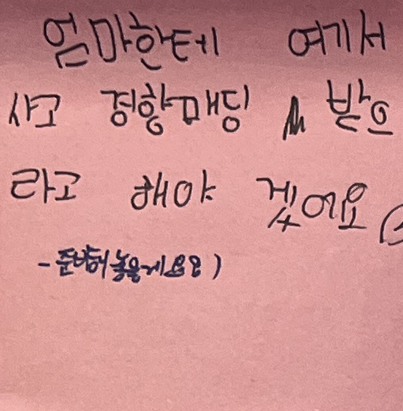 엄마한테 여기서
사고 경향매딩 받으
라고 해야 겠어요
- 준비해놓을게요요)